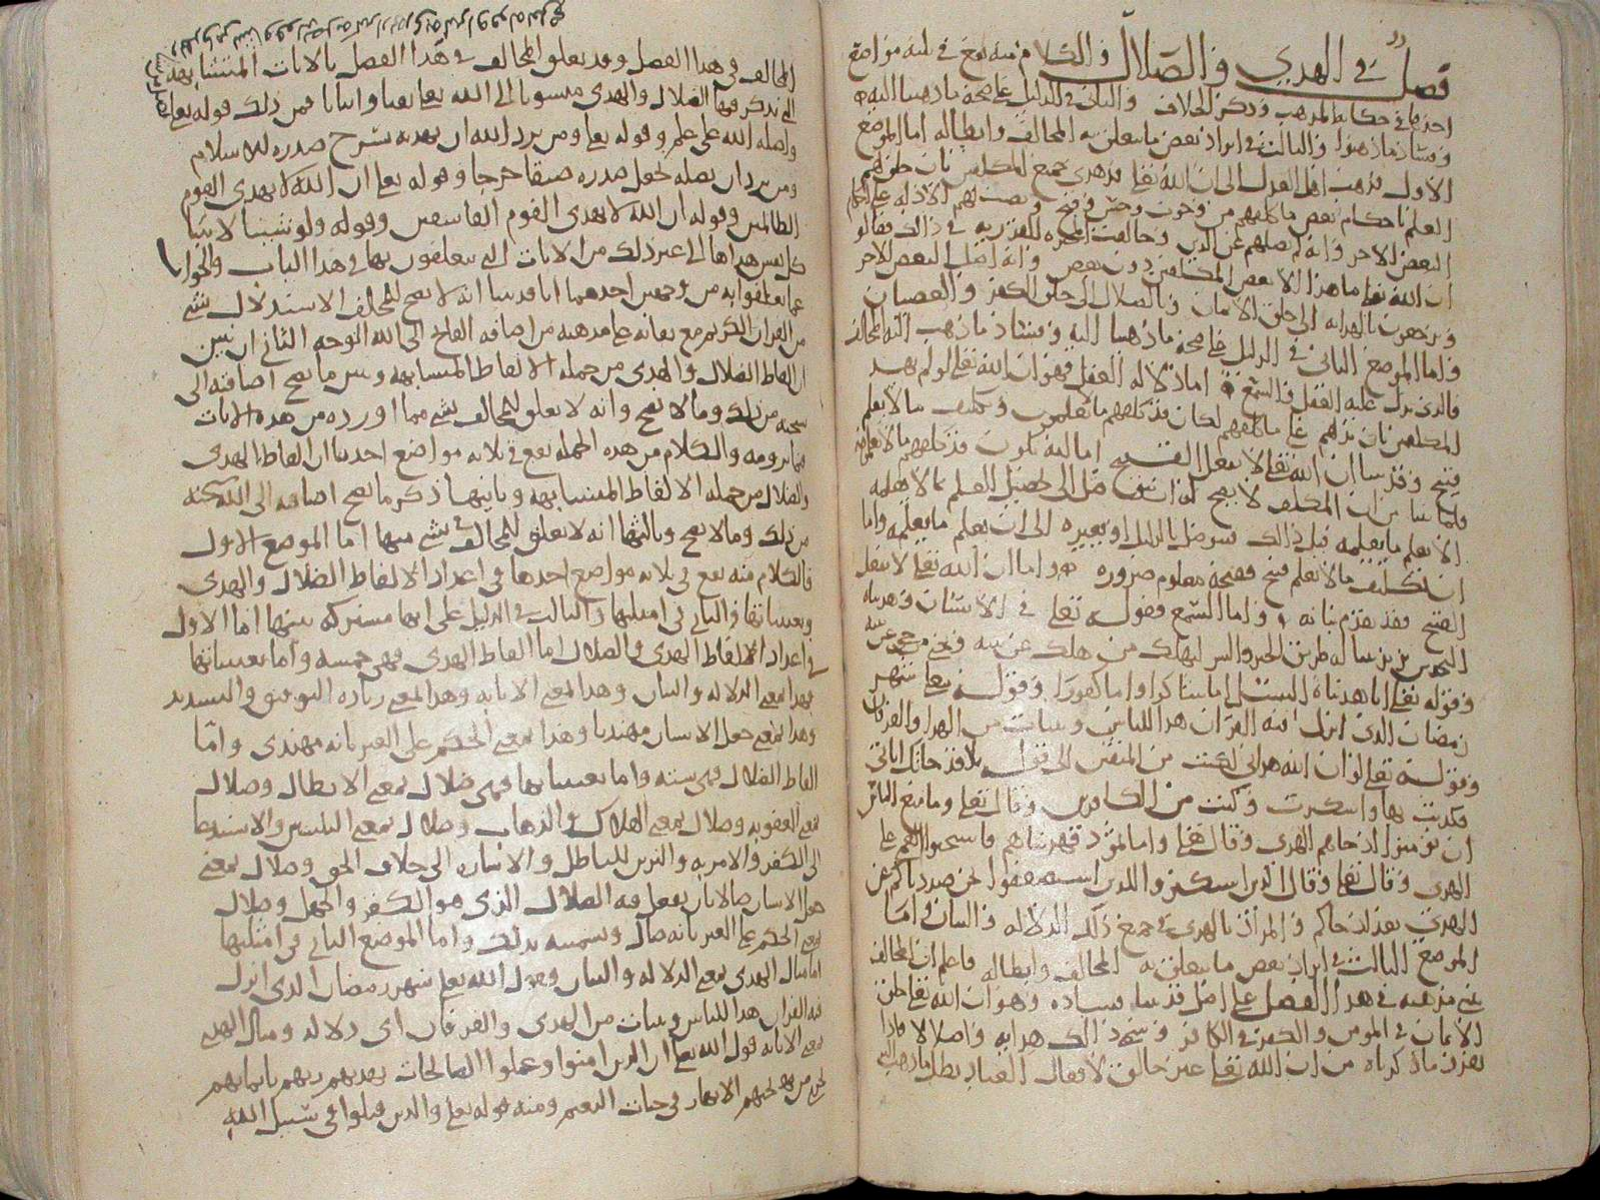 فصل في الهدى والضلال والكلام منه يقع في ثلثه مواضع
احدها في حكايه المذهب وذكر الخلاف والثاني في الدليل على صحه ما ذهبنا اليه
وفساد ما ذهبوا والثالث في ايراد بعض ما يتعلق به المخالف وابطاله اما الموضع
الاول فذهب اهل العدل الى ان الله تعلى قد هدى جميع المكلفين بان خلق لهم
العلم باحكام بعض ما كلفهم من وجوب وحسن وقبح ونصب لهم الادله على احكام
البعض الاخر وانه لم يضلهم عن الدين وخالفت المجبره القدريه في ذلك فقالو
ان الله تعلى ما هدا الا بعض المكلفين دون بعض وانه اضل البعض الاخر
ويرجعون بالهدايه الى خلق الايمان وبالضلال الى خلق الكفر والعصيان
واما الموضع الثاني في الدليل على صحه ما ذهبنا اليه وفساد ما ذهب اليه المخالف
فالذي يدل عليه العقل والسمع اما دلاله العقل فهو ان الله تعلى لو لم يهد
المكلفين بان يدلهم على ما كلفهم لكان قد كلفهم ما لا يعلمون وتكليف ما لا يعلم
قبيح وقد بينا ان الله تعلى لا يفعل القبيح اما انه يكون قد كلفهم ما لا يعلمونه
ان تكليف ما لا يعلم قبيح فقبحه معلوم ضروره واما ان الله تعلى لا يفعل
القبيح فقد تقدم بيانه واما السمع فقوله تعلى في الانسان وهديناه
النجدين يريد بينا له طريق الخير والشر ليهلك من هلك عن بينه ويحيى من حي عن بينه
وقوله تعلى انا هديناه السبيل اما شاكرا واما كفورا وقوله تعلى شهر
رمضان الذي انزل فيه القران هدا للناس وبينات من الهدا والفرقان
وقوله تعلى لو ان الله هداني لكنت من المتقين الى قوله بلا قد جاتك اياتي
فكذبت بها واستكبرت وكنت من الكافرين وقال تعلى وما منع الناس
ان يؤمنوا اذ جاهم الهدى وقال تعلى واما ثمود فهديناهم فاستحبوا العمى على
الهدى وقال تعلى وقال الذين استكبروا للذين استضعفوا انحن صددناكم عن
الهدى بعد اذ جاكم والمراد بالهدى في جميع ذلك الدلاله والبيان واما
الموضع الثالث في ايراد بعض ما يتعلق به المخالف وابطاله فاعلم ان المخالف
بنى مذهبه في هذا الفصل على اصل قد بينا فساده وهو ان الله تعلى خلق
الايمان في المومن والكفر في الكافر وسمى ذلك هدايه واضلالا واذا
تقرر ما ذكرناه من ان الله تعلى غير خالق لافعال العباد بطل ما ذهب اليه
المخالف في هذا الفصل وقد يعلق المخالف في هذا الفصل بالايات المتشابهه
التي ذكر فيها الضلال والهدى منسوبا الى الله تعلى نفيا واثباتا فمن ذلك قوله تعلى
واضله الله على علم وقوله تعلى ومن يرد الله ان يهديه يشرح صدره للاسلام
ومن يرد ان يضله يجعل صدره ضيقا حرجا وقوله تعلى ان الله لا يهدي القوم
الظالمين وقوله ان الله لا يهدي القوم الفاسقين وقوله ولو شينا لاتينا
كل نفس هداها الى غير ذلك من الايات التي يتعلقون بها في هذا الباب والجواب
عما تعلقوا به من وجهين احدهما انا قد بينا انه لا يصح للمخالف الاستدلال بشي
من القران الكريم مع بقائه على مذهبه من اضافه القبائح الى الله الوجه الثاني ان نبين
ان الفاظ الضلال والهدى من جمله الالفاظ المتشابهه ونبين ما يصح اضافته الى
سبحنه من ذلك وما لا يصح وانه لا تعلق للمخالف بشي مما اورده من هذه الايات
فيما يرومه والكلام من هذه الجمله يقع في ثلاثه مواضع احدها ان الفاظ الهدى
والضلال من جمله الالفاظ المتشابهه وثانيها ذكر ما يصح اضافته الى الله سبحنه
من ذلك وما لا يصح وثالثها انه لا تعلق للمخالف في شي منها اما الموضع الاول
فالكلام منه يقع في ثلاثه مواضع احدها في اعداد الالفاظ الضلال والهدى
ومعانيها والثاني في امثلتها والثالث في الدليل على انها مشتركه بينها اما الاول
في اعداد الالفاظ الهدى والضلال اما الفاظ الهدى فهي خمسه واما معانيها
فهدا بمعنى الدلاله والبيان وهدا بمعنى الاثابه وهدا بمعنى زياده التوفيق والتسديد
وهدا بمعنى جعل الانسان مهتديا وهدا بمعنى الحكم على الغير بانه مهتدى واما
الفاظ الضلال فهي سته واما معانيها فهي ضلال بمعنى الابطال وضلال
بمعنى العقوبه وضلال بمعنى الهلاك والذهاب وضلال بمعنى التلبيس والاستدعا
الى الكفر والامر به والتزين للباطل والاشاره الى خلاف الحق وضلال بمعنى
جعل الانسان ضالا بان يفعل فيه الضلال الذي هو الكفر والجهل وضلال
بمعنى الحكم على الغير بانه ضال وتسميته بذلك واما الموضع الثاني في امثلتها
اما مثال الهدى بمعنى الدلاله والبيان وقول الله تعلى شهر رمضان الذي انزل
فيه القران هدا للناس وبينات من الهدى والفرقان اي دلاله ومثال الهدى
بمعنى الاثابه قول الله تعلى ان الذين امنوا وعملوا الصالحات يهديهم ربهم بايمانهم
تجري من تحتهم الانهار في جنات النعيم ومنه قوله تعلى والذين قتلوا في سبيل الله